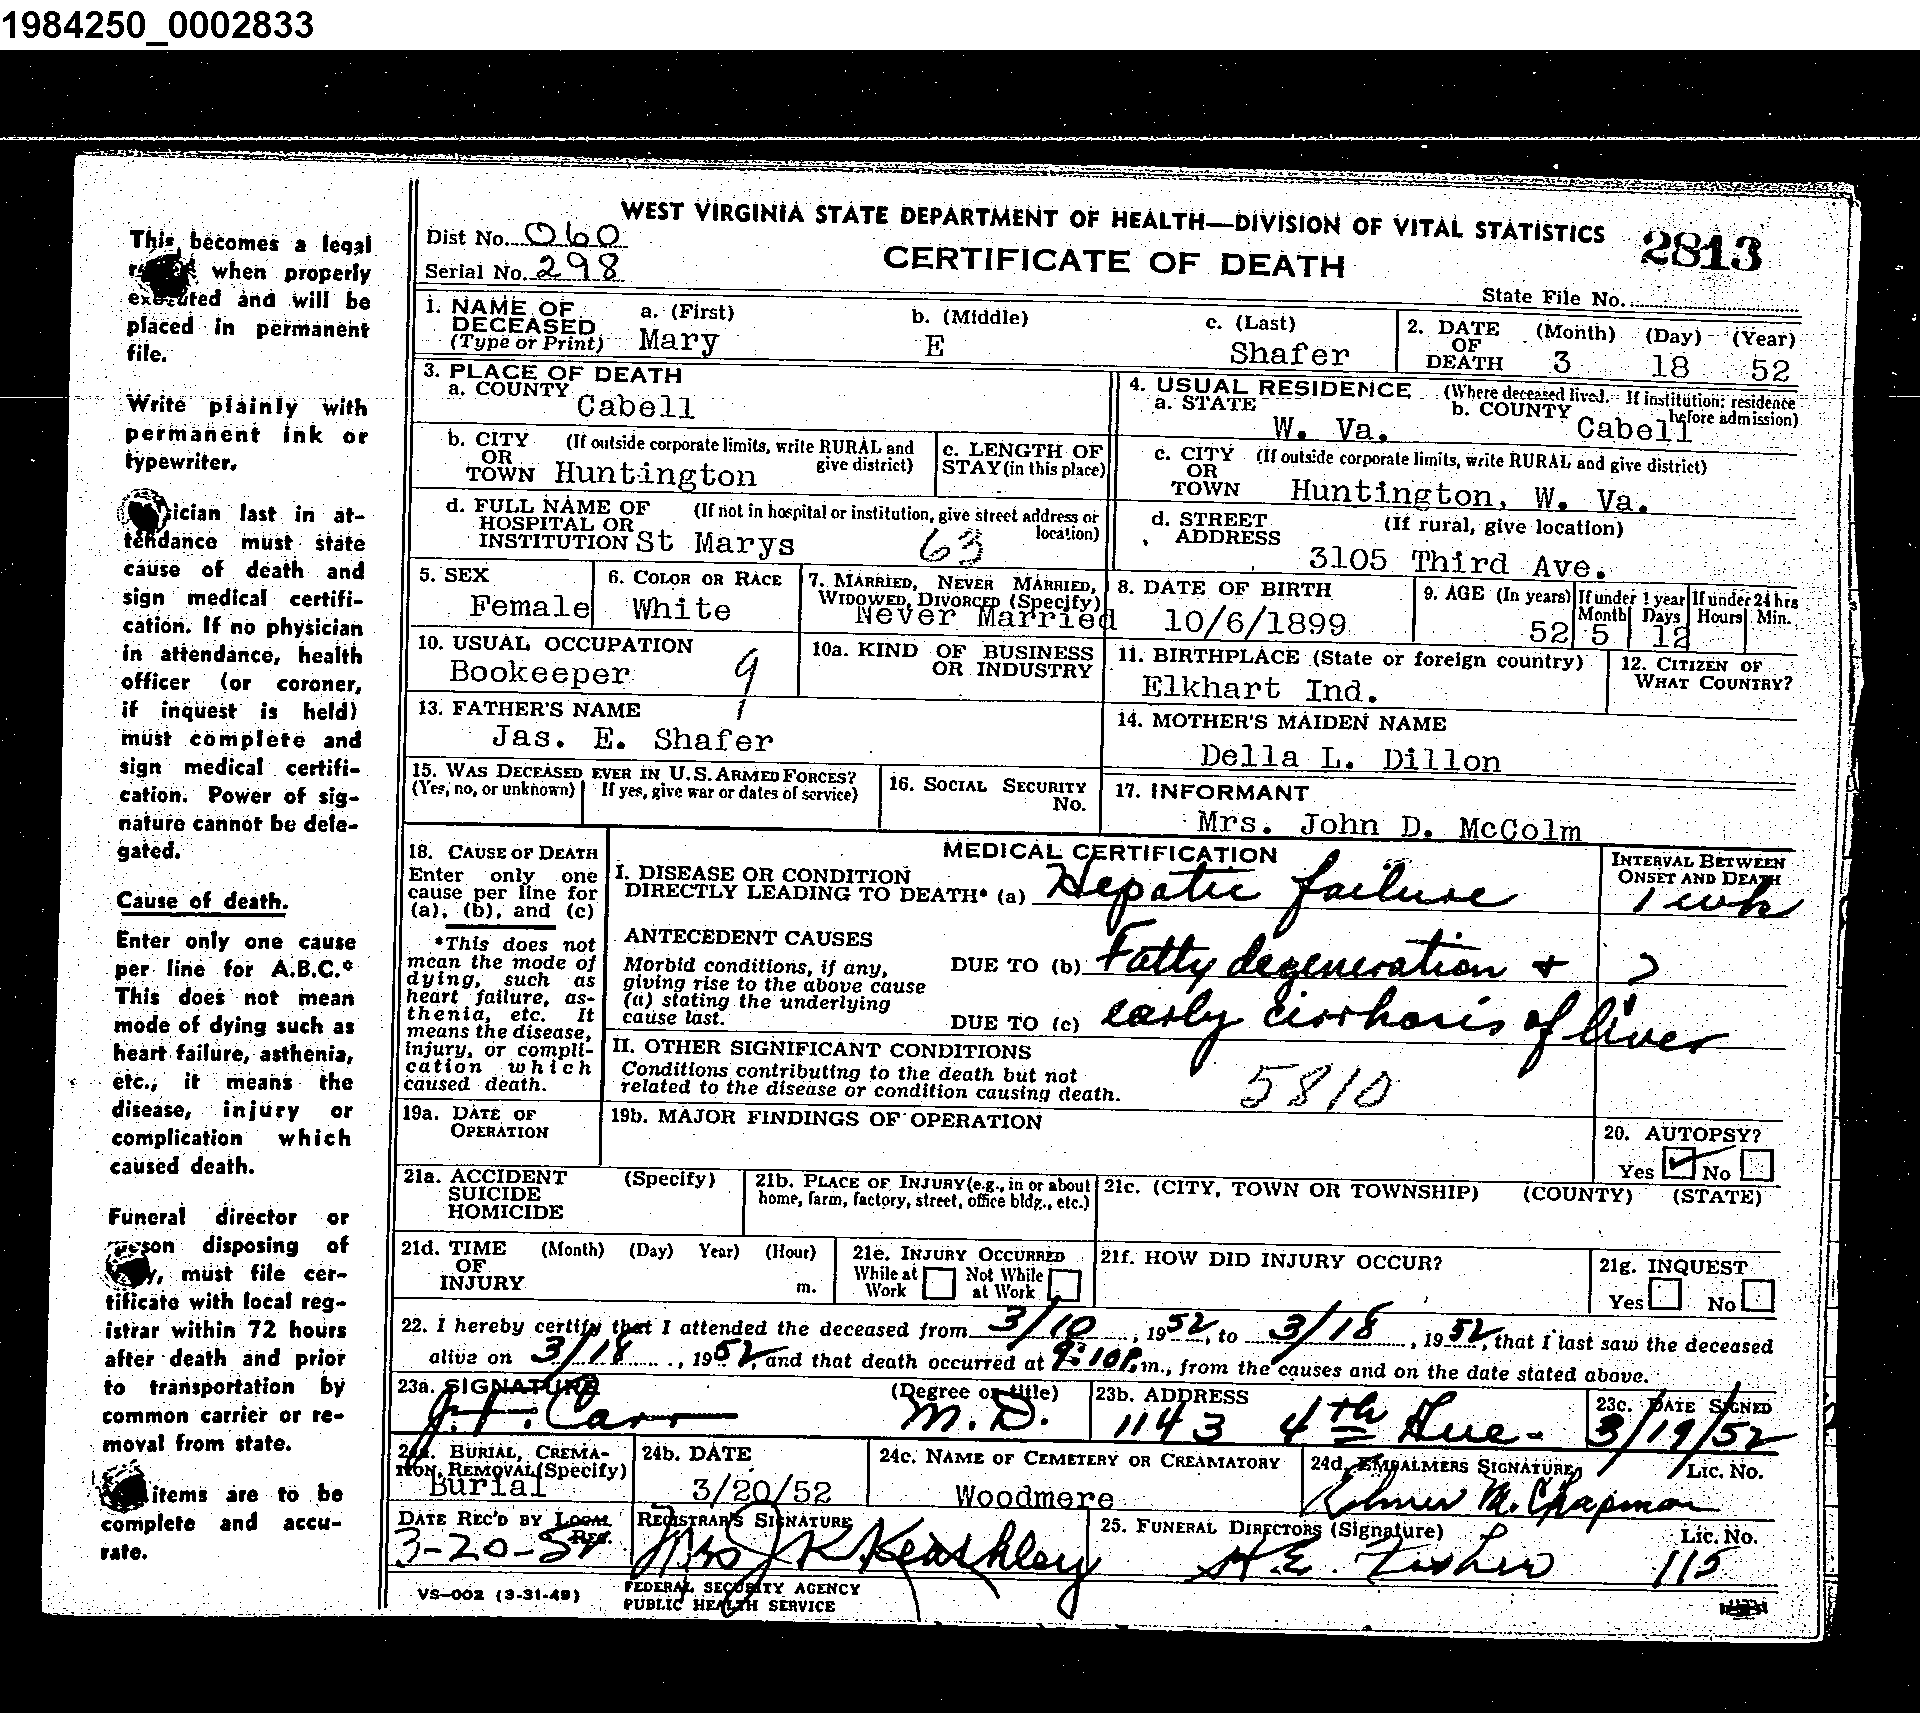 1984250_0002833
WEST VIRGINIA STATE DEPARTMENT OF HEALTH—DIVISION OF VITAL STATISTICS
CERTIFICATE OF DEATH
2813
Dist No. 060
Serial No. 298
State File No.
This becomes a legal
when properly
executed and will be
placed in permanent
file.
Write plainly with
permanent ink or
typewriter.
ician last in at-
tendance must state
cause of death and
sign medical certifi-
cation. If no physician
in attendance, health
officer (or coroner,
if inquest is held)
must complete and
sign medical certifi-
cation. Power of sig-
nature cannot be dele-
gated.
Cause of death.
Enter only one cause
per line for A.B.C.*
This does not mean
mode of dying such as
heart failure, asthenia,
etc., it means the
disease, injury or
complication which
caused death.
Funeral director or
person disposing of
must file cer-
tificate with local reg-
istrar within 72 hours
after death and prior
to transportation by
common carrier or re-
moval from state.
items are to be
complete and accu-
rate.
1. NAME OF DECEASED (Type or Print)
a. (First) Mary
b. (Middle) E
c. (Last) Shafer
2. DATE OF DEATH (Month) (Day) (Year)
3 18 52
3. PLACE OF DEATH
a. COUNTY Cabell
4. USUAL RESIDENCE (Where deceased lived. If institution; residence before admission)
a. STATE W. Va.
b. COUNTY Cabell
b. CITY OR TOWN (If outside corporate limits, write RURAL and give district) Huntington
c. LENGTH OF STAY (in this place)
c. CITY OR TOWN (If outside corporate limits, write RURAL and give district)
Huntington, W. Va.
d. FULL NAME OF HOSPITAL OR INSTITUTION (If not in hospital or institution, give street address or location)
St Marys 63
d. STREET ADDRESS (If rural, give location)
3105 Third Ave.
5. SEX Female
6. COLOR OR RACE White
7. MARRIED, NEVER MARRIED, WIDOWED, DIVORCED (Specify)
Never Married
8. DATE OF BIRTH 10/6/1899
9. AGE (In years) 52
If under 1 year Month 5 Days 12
If under 24 hrs Hours Min.
10. USUAL OCCUPATION
Bookeeper 9
10a. KIND OF BUSINESS OR INDUSTRY
11. BIRTHPLACE (State or foreign country)
Elkhart Ind.
12. CITIZEN OF WHAT COUNTRY?
13. FATHER'S NAME
Jas. E. Shafer
14. MOTHER'S MAIDEN NAME
Della L. Dillon
15. WAS DECEASED EVER IN U.S. ARMED FORCES?
(Yes, no, or unknown) If yes, give war or dates of service)
16. SOCIAL SECURITY No.
17. INFORMANT
Mrs. John D. McColm
18. CAUSE OF DEATH
Enter only one
cause per line for
(a), (b), and (c)
*This does not
mean the mode of
dying, such as
heart failure, as-
thenia, etc. It
means the disease,
injury, or compli-
cation which
caused death.
MEDICAL CERTIFICATION
INTERVAL BETWEEN ONSET AND DEATH
I. DISEASE OR CONDITION
DIRECTLY LEADING TO DEATH* (a) Hepatic failure 1 wk
ANTECEDENT CAUSES
Morbid conditions, if any,
giving rise to the above cause
(a) stating the underlying
cause last.
DUE TO (b) Fatty degeneration + ?
DUE TO (c) early cirrhosis of liver
II. OTHER SIGNIFICANT CONDITIONS
Conditions contributing to the death but not
related to the disease or condition causing death.
5810
19a. DATE OF OPERATION
19b. MAJOR FINDINGS OF OPERATION
20. AUTOPSY?
Yes ✓ No
21a. ACCIDENT SUICIDE HOMICIDE (Specify)
21b. PLACE OF INJURY (e.g., in or about home, farm, factory, street, office bldg., etc.)
21c. (CITY, TOWN OR TOWNSHIP) (COUNTY) (STATE)
21d. TIME OF INJURY (Month) (Day) Year) (Hour) m.
21e. INJURY OCCURRED
While at Work Not While at Work
21f. HOW DID INJURY OCCUR?
21g. INQUEST
Yes No
22. I hereby certify that I attended the deceased from 3/10, 1952, to 3/18, 1952, that I last saw the deceased
alive on 3/18, 1952, and that death occurred at 9:10P.m., from the causes and on the date stated above.
23a. SIGNATURE (Degree or title)
Carr M.D.
23b. ADDRESS
1143 4th Ave.
23c. DATE SIGNED
3/19/52
24a. BURIAL, CREMA-
TION, REMOVAL (Specify)
Burial
24b. DATE
3/20/52
24c. NAME OF CEMETERY OR CREAMATORY
Woodmere
24d. EMBALMERS SIGNATURE, Lic. No.
Elmer M. Chapman
DATE REC'D BY LOCAL REG.
3-20-52
REGISTRAR'S SIGNATURE
Mrs J K Keathley
25. FUNERAL DIRECTORS (Signature) Lic. No.
H.E. 115
VS-002 (3-31-49)
FEDERAL SECURITY AGENCY
PUBLIC HEALTH SERVICE